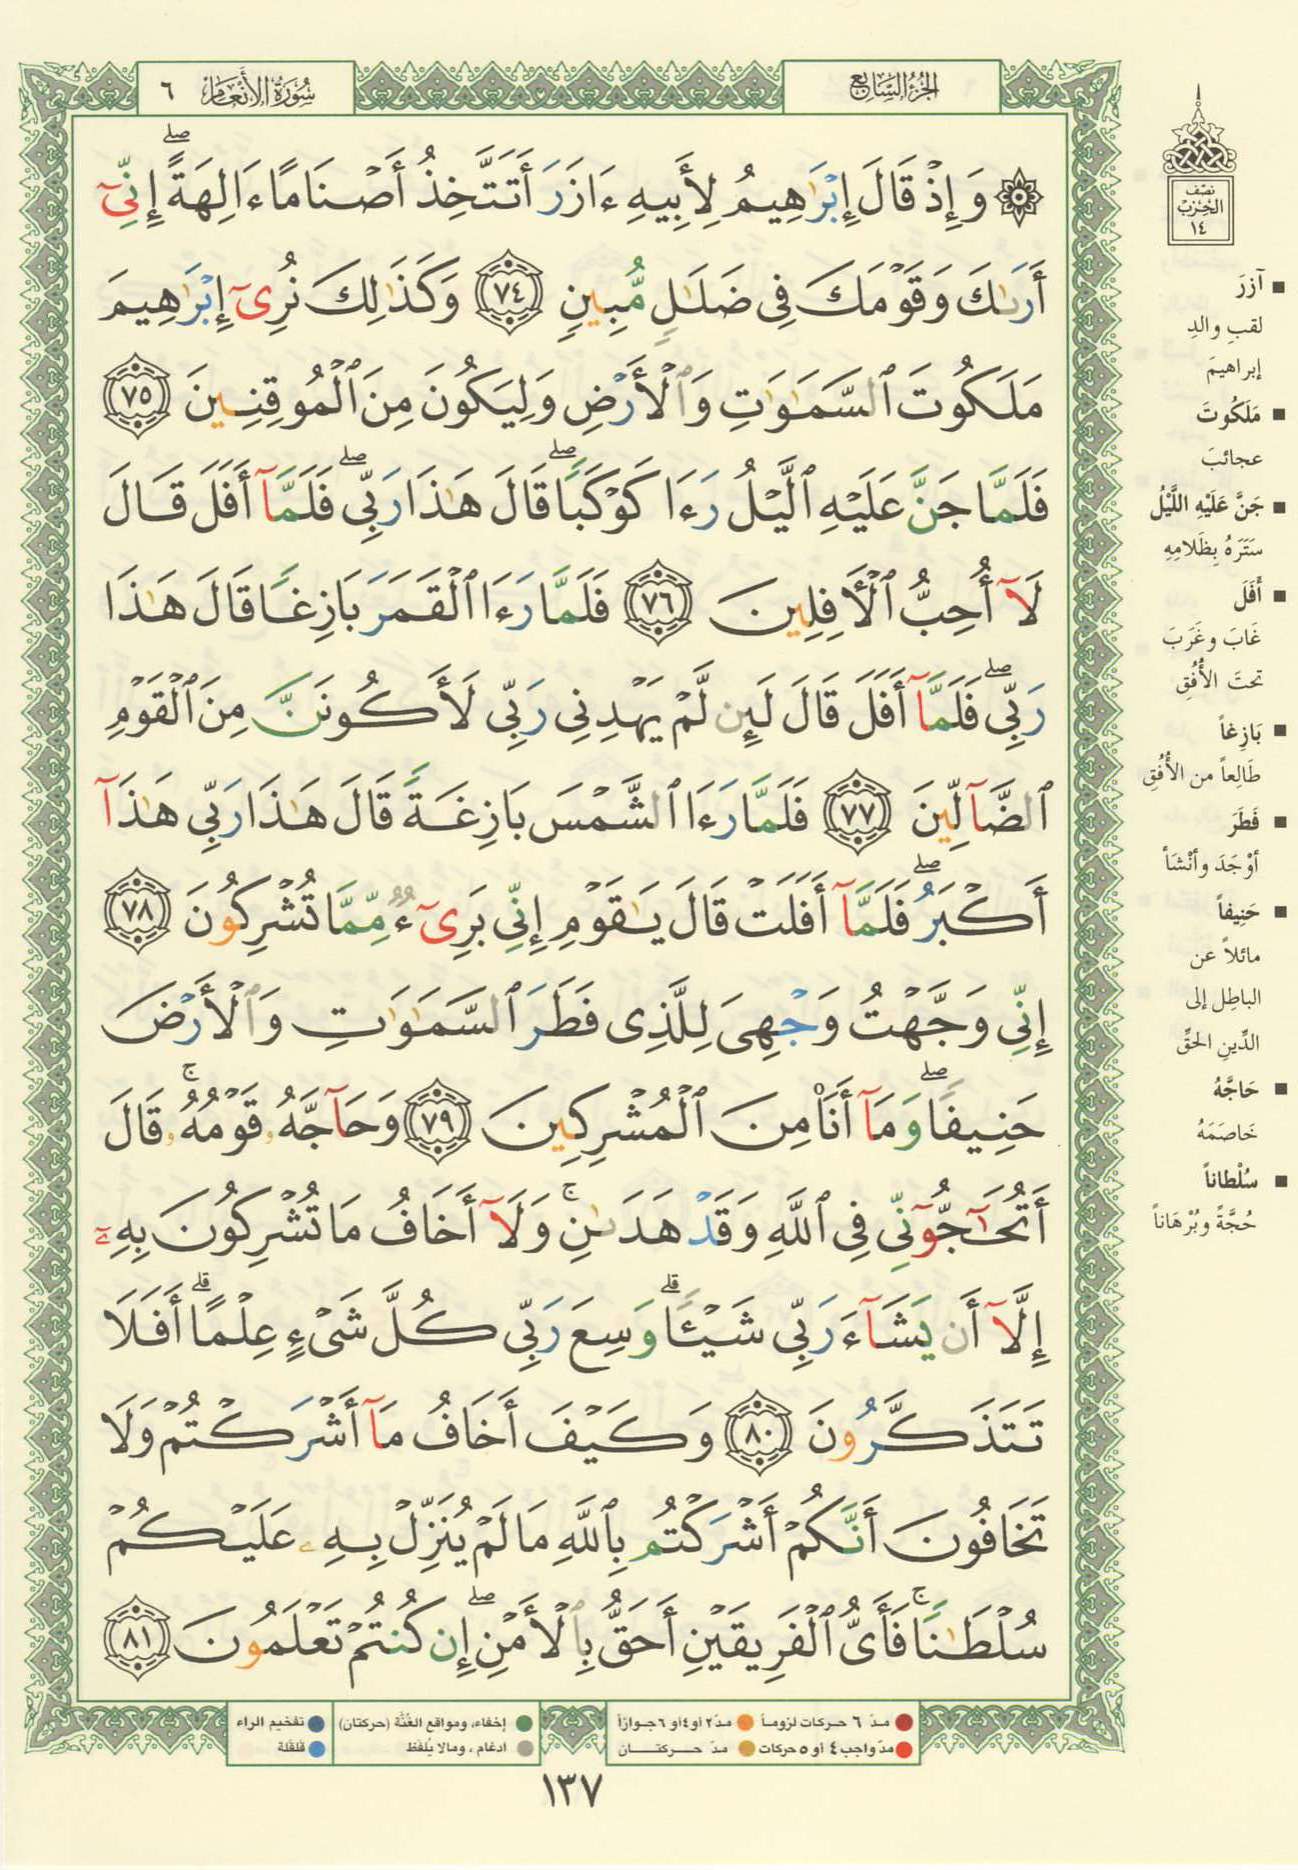 سُورَةُ الأَنْعَامِ ٦
الجُزْءُ السَّابِعُ
۞ وَإِذْ قَالَ إِبْرَٰهِيمُ لِأَبِيهِ ءَازَرَ أَتَتَّخِذُ أَصْنَامًا ءَالِهَةً ۖ إِنِّىٓ
أَرَىٰكَ وَقَوْمَكَ فِى ضَلَـٰلٍ مُّبِينٍ ﴿٧٤﴾ وَكَذَٰلِكَ نُرِىٓ إِبْرَٰهِيمَ
مَلَكُوتَ ٱلسَّمَـٰوَٰتِ وَٱلْأَرْضِ وَلِيَكُونَ مِنَ ٱلْمُوقِنِينَ ﴿٧٥﴾
فَلَمَّا جَنَّ عَلَيْهِ ٱلَّيْلُ رَءَا كَوْكَبًا ۖ قَالَ هَـٰذَا رَبِّى ۖ فَلَمَّآ أَفَلَ قَالَ
لَآ أُحِبُّ ٱلْـَٔافِلِينَ ﴿٧٦﴾ فَلَمَّا رَءَا ٱلْقَمَرَ بَازِغًا قَالَ هَـٰذَا
رَبِّى ۖ فَلَمَّآ أَفَلَ قَالَ لَئِن لَّمْ يَهْدِنِى رَبِّى لَأَكُونَنَّ مِنَ ٱلْقَوْمِ
ٱلضَّآلِّينَ ﴿٧٧﴾ فَلَمَّا رَءَا ٱلشَّمْسَ بَازِغَةً قَالَ هَـٰذَا رَبِّى هَـٰذَآ
أَكْبَرُ ۖ فَلَمَّآ أَفَلَتْ قَالَ يَـٰقَوْمِ إِنِّى بَرِىٓءٌ مِّمَّا تُشْرِكُونَ ﴿٧٨﴾
إِنِّى وَجَّهْتُ وَجْهِىَ لِلَّذِى فَطَرَ ٱلسَّمَـٰوَٰتِ وَٱلْأَرْضَ
حَنِيفًا ۖ وَمَآ أَنَا۠ مِنَ ٱلْمُشْرِكِينَ ﴿٧٩﴾ وَحَآجَّهُۥ قَوْمُهُۥ ۚ قَالَ
أَتُحَـٰٓجُّوٓنِّى فِى ٱللَّهِ وَقَدْ هَدَىٰنِ ۚ وَلَآ أَخَافُ مَا تُشْرِكُونَ بِهِۦٓ
إِلَّآ أَن يَشَآءَ رَبِّى شَيْـًٔا ۗ وَسِعَ رَبِّى كُلَّ شَىْءٍ عِلْمًا ۗ أَفَلَا
تَتَذَكَّرُونَ ﴿٨٠﴾ وَكَيْفَ أَخَافُ مَآ أَشْرَكْتُمْ وَلَا
تَخَافُونَ أَنَّكُمْ أَشْرَكْتُم بِٱللَّهِ مَا لَمْ يُنَزِّلْ بِهِۦ عَلَيْكُمْ
سُلْطَـٰنًا ۚ فَأَىُّ ٱلْفَرِيقَيْنِ أَحَقُّ بِٱلْأَمْنِ ۖ إِن كُنتُمْ تَعْلَمُونَ ﴿٨١﴾
نِصْف
الحِزْب
١٤
▪ آزَرَ
لقبِ والدِ
إبراهيمَ
▪ مَلَكُوتَ
عجائبَ
▪ جَنَّ عَلَيْهِ اللَّيْلُ
سَتَرَهُ بِظَلامِهِ
▪ أَفَلَ
غَابَ وغَرَبَ
تحتَ الأُفُقِ
▪ بَازِغاً
طَالِعاً من الأُفُقِ
▪ فَطَرَ
أوْجَدَ وأنْشَأ
▪ حَنِيفاً
مائلاً عن
الباطِلِ إلى
الدِّينِ الحَقِّ
▪ حَاجَّهُ
خَاصَمَهُ
▪ سُلْطاناً
حُجَّةً وبُرْهَاناً
مدّ ٦ حركات لزوماً
مدّ ٢ أو ٤ أو ٦ جوازاً
مدّ واجب ٤ أو ٥ حركات
مدّ حركتان
إخفاء، ومواقع الغُنَّة (حركتان)
تفخيم الراء
ادغام، ومالا يُلفظ
قلقلة
١٣٧